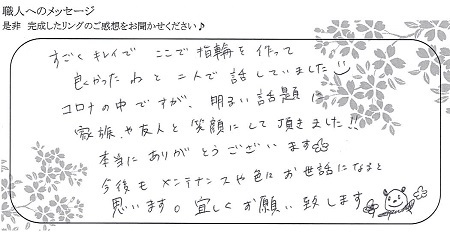 職人へのメッセージ
是非 完成したリングのご感想をお聞かせください♪
すごく キレイで ここで 指輪を 作って
良かったねと 二人で 話していました
コロナの中ですが、明るい 話題に
家族、や友人と 笑顔にして頂きました!!
本当に ありがとうございます
今後も メンテナンスや色々 お世話になると
思います。宜しく お願い 致します